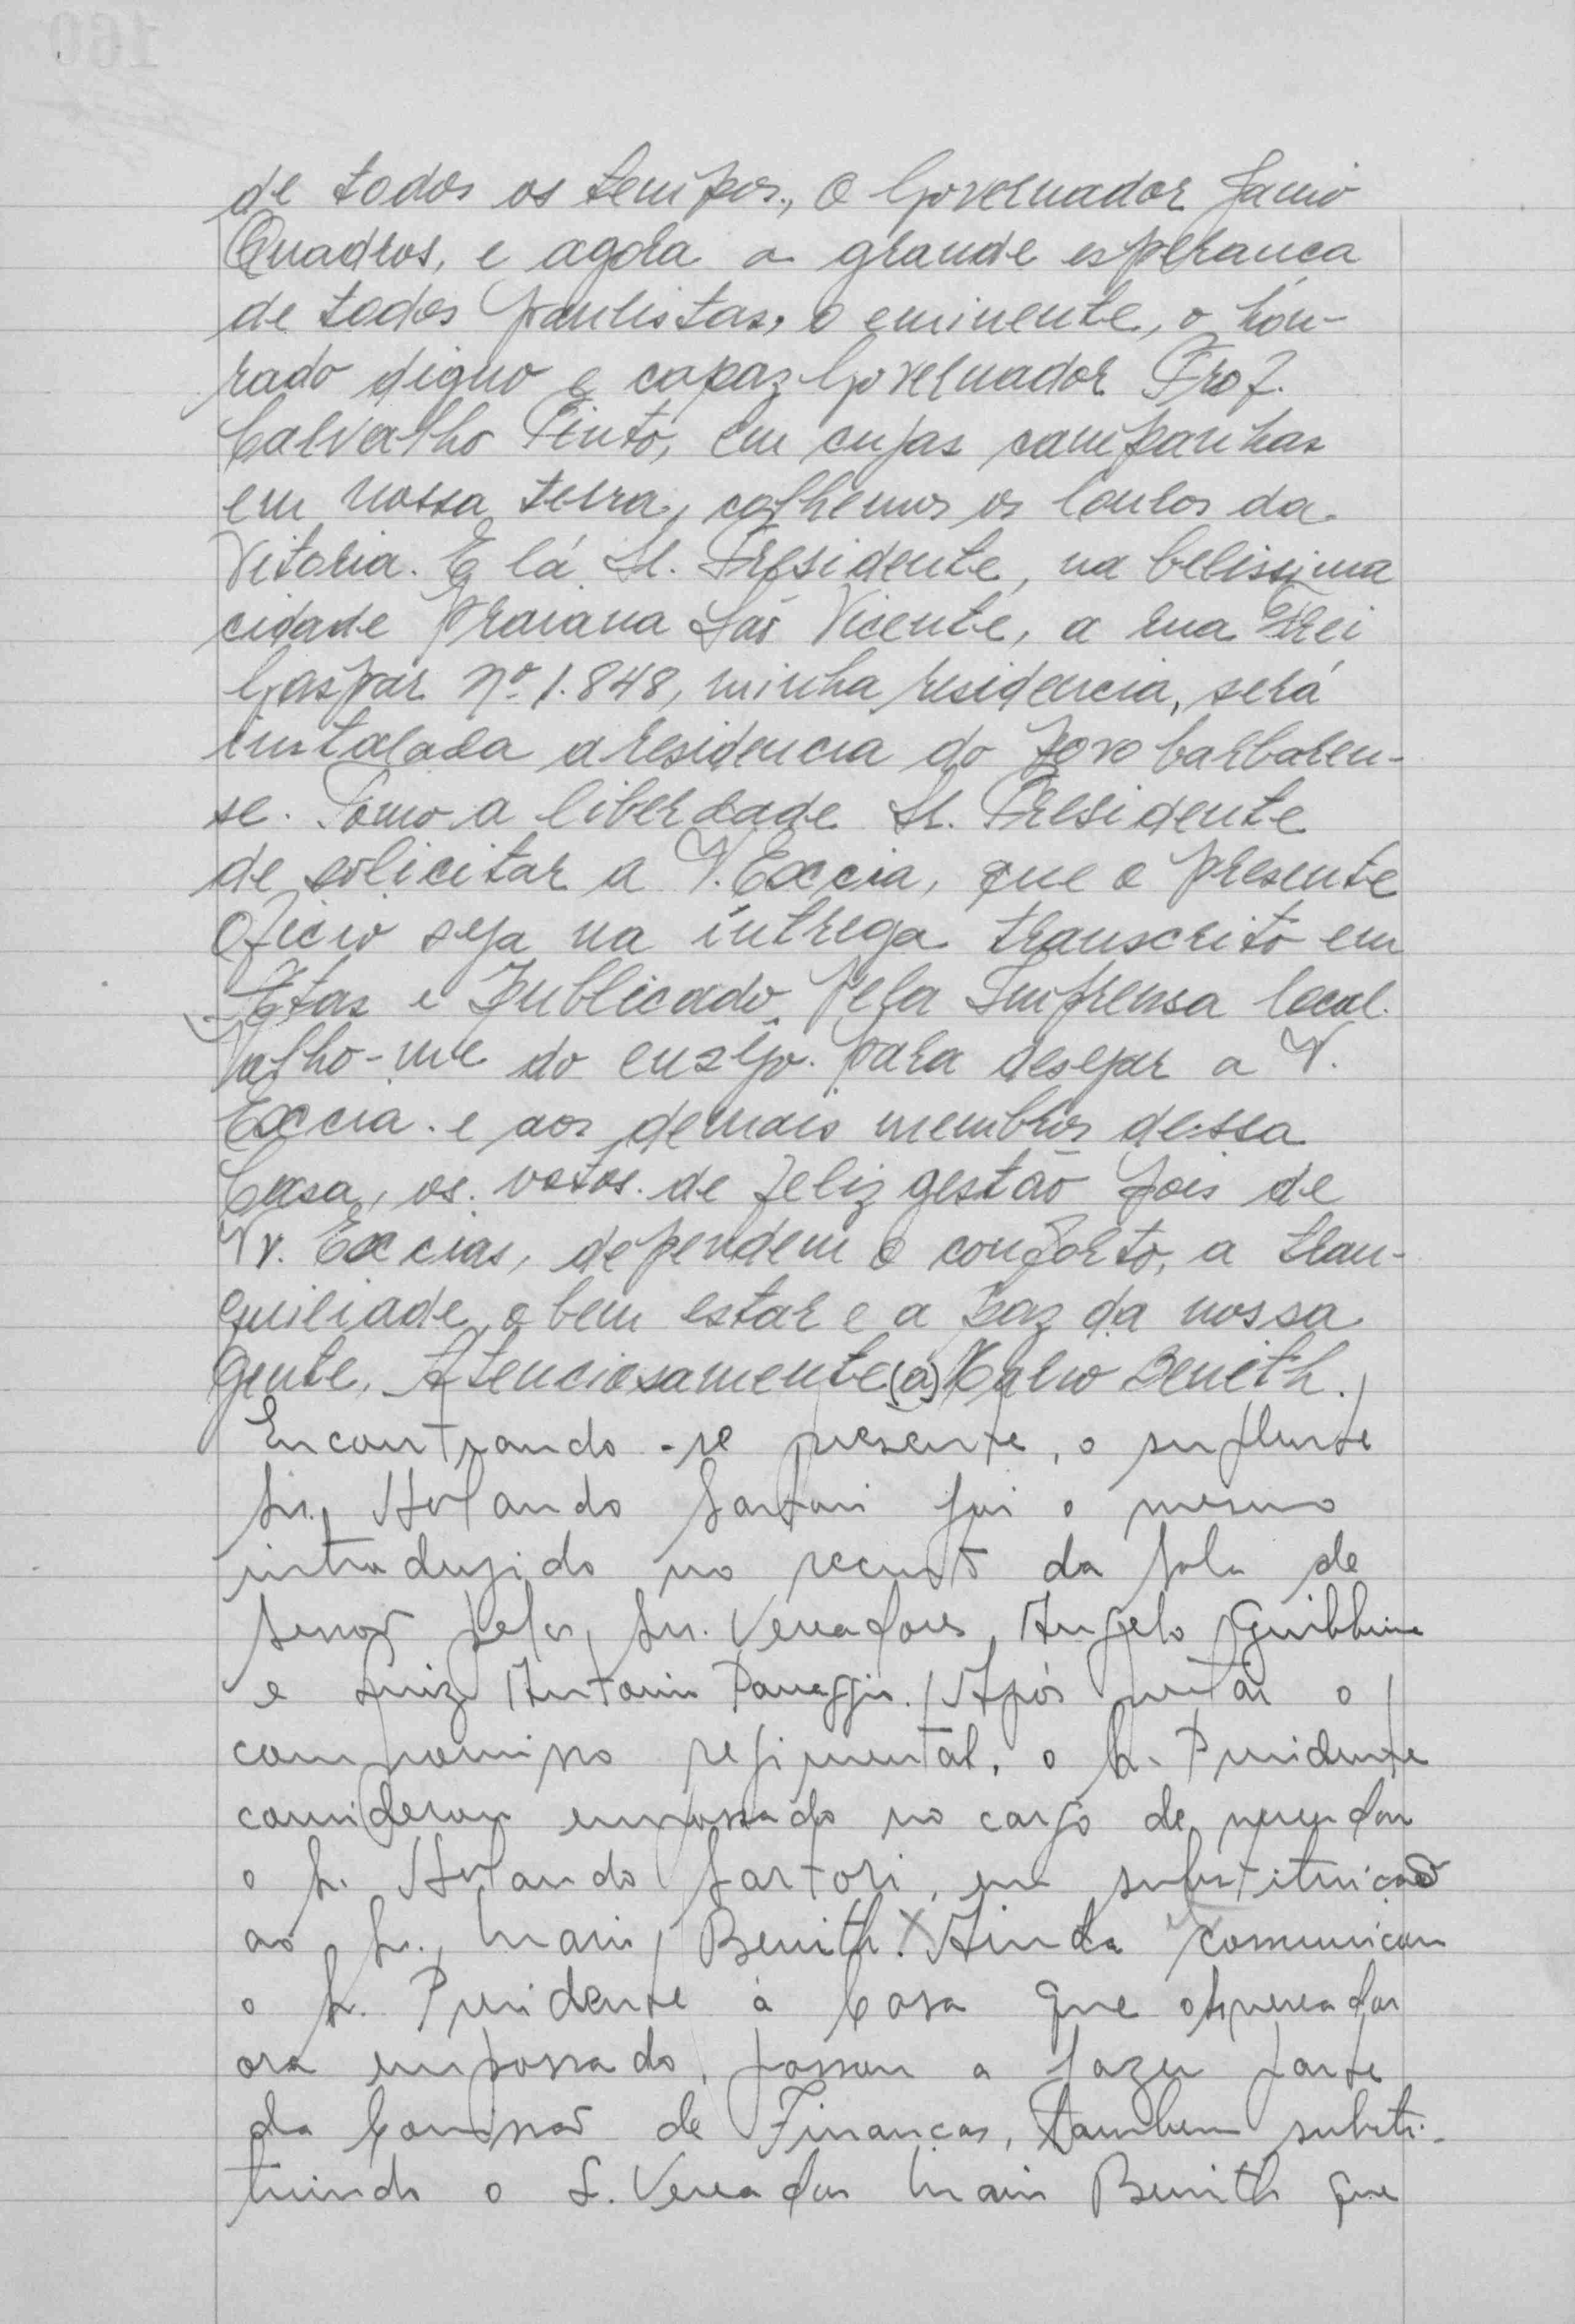 de todos os tempos, o Governador Janio
Quadros, e agora a grande esperanca
de todos paulistas, o eminente, o hon-
rado digno e capaz Governador Prof.
Carvalho Pinto, em cujas campanhas
em nossa terra, colhemos os louros da
Vitoria. E lá Sr. Presidente, na belissima
cidade Praiana São Vicente, a rua Frei
Gaspar Nº 1.848, minha residencia, será
instalada a residencia do povo barbaren-
se. Tomo a liberdade Sr. Presidente
de solicitar a V. Excia, que o presente
Oficio seja na íntrega transcrito em
Atas e publicado pela Imprensa local.
Valho-me do ensejo para desejar a V.
Excia. e aos demais membros dessa
Casa, os votos de feliz gestão pois de
Vv. Excias, dependem o conforto, a tran-
quiliade, o bem estar e a paz da nossa
gente. Atenciosamente (a) Mario Benith.
Encontrando-se presente, o suplente
Sr. Orlando Sartori foi o mesmo
introduzido no recinto da sala de
sessão pelos Srs. Vereadores, Angelo
e Luiz Antonio Panaggio. Após prestar o
compromisso regimental, o Sr. Presidente
considerou empossado no cargo de vereador
o Sr. Orlando Sartori, em substituicão
ao Sr. Mario Benith. Ainda comunicou
o Sr. Presidente à Casa que o vereador
ora empossado, passou a fazer parte
da Comissão de Financas, tambem substi-
tuindo o S. Vereador Mario Benith que